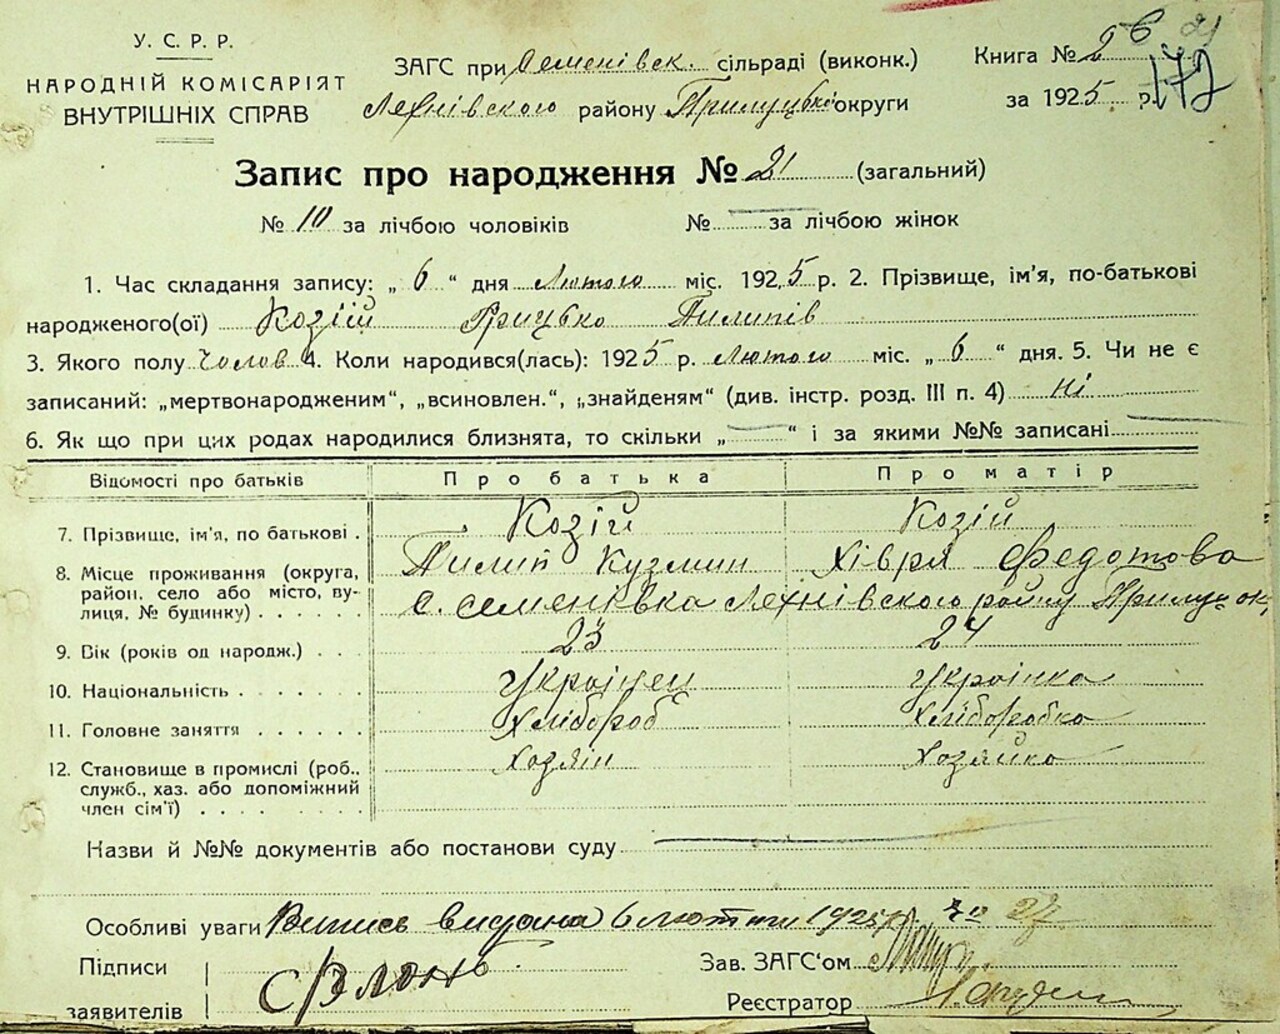 У. С. Р. Р.
НАРОДНІЙ КОМІСАРІЯТ
ВНУТРІШНІХ СПРАВ
ЗАГС при Семенівск. сільраді (виконк.)
Лехнівского району Прилуцької округи
Книга № 2
за 1925 р.
172
Запис про народження № 21 (загальний)
№ 10 за лічбою чоловіків № за лічбою жінок
1. Час складання запису: „ 6 “ дня Лютого міс. 1925 р. 2. Прізвище, ім’я, по-батькові
народженого(ої) Козій Грицько Пилипів
3. Якого полу Чолов 4. Коли народився(лась): 1925 р. Лютого міс. „ 6 “ дня. 5. Чи не є
записаний: „мертвонародженим“, „всиновлен.“, „знайденям“ (див. інстр. розд. III п. 4) Ні
6. Як що при цих родах народилися близнята, то скільки „ “ і за якими №№ записані
Відомості про батьків Про батька Про матір
7. Прізвище, ім’я, по батькові . Козій Козій
Пилип Кузмин Хівря Федотова
8. Місце проживання (округа,
район, село або місто, ву-
лиця, № будинку) . . . . . . с. Семенівка Лехнівского району Прилуц ок,
9. Вік (років од народж.) . . . 23 24
10. Національність . . . . . . . Украінец Украінка
11. Головне заняття . . . . . . Хлібороб Хліборобка
12. Становище в промислі (роб.,
служб., хаз. або допоміжний
член сім’ї) . . . . . . . . Хозяін Хозяйка
Назви й №№ документів або постанови суду
Особливі уваги Випись видана 6 лютого 1925 р. за 27
Підписи
заявителів
Зав. ЗАГС‘ом
Реєстратор